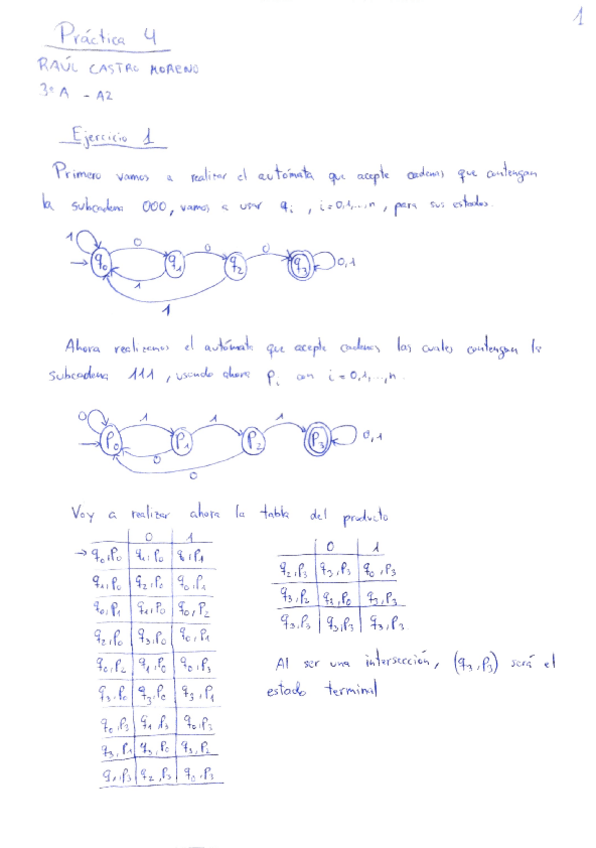 1
Práctica 4
RAÚL CASTRO MORENO
3º A - A2
Ejercicio 1
Primero vamos a realizar el autómata que acepte cadenas que contengan
la subcadena 000, vamos a usar qi , i=0,1,...,n, para sus estados.
1 0 0 0
q0 q1 q2 q3 0,1
1
1
Ahora realizamos el autómata que acepte cadenas las cuales contengan la
subcadena 111, usando ahora Pi con i=0,1,..,n.
0 1 1 1
P0 P1 P2 P3 0,1
0
0
Voy a realizar ahora la tabla del producto
0 1
→ q0,P0 q1,P0 q0,P1
q1,P0 q2,P0 q0,P1
q0,P1 q1,P0 q0,P2
q2,P0 q3,P0 q0,P1
q0,P2 q1,P0 q0,P3
q3,P0 q3,P0 q3,P1
q0,P3 q1,P3 q0,P3
q3,P1 q3,P0 q3,P2
q1,P3 q2,P3 q0,P3
0 1
q2,P3 q3,P3 q0,P3
q3,P2 q3,P0 q3,P3
q3,P3 q3,P3 q3,P3
Al ser una intersección, (q3,P3) será el
estado terminal